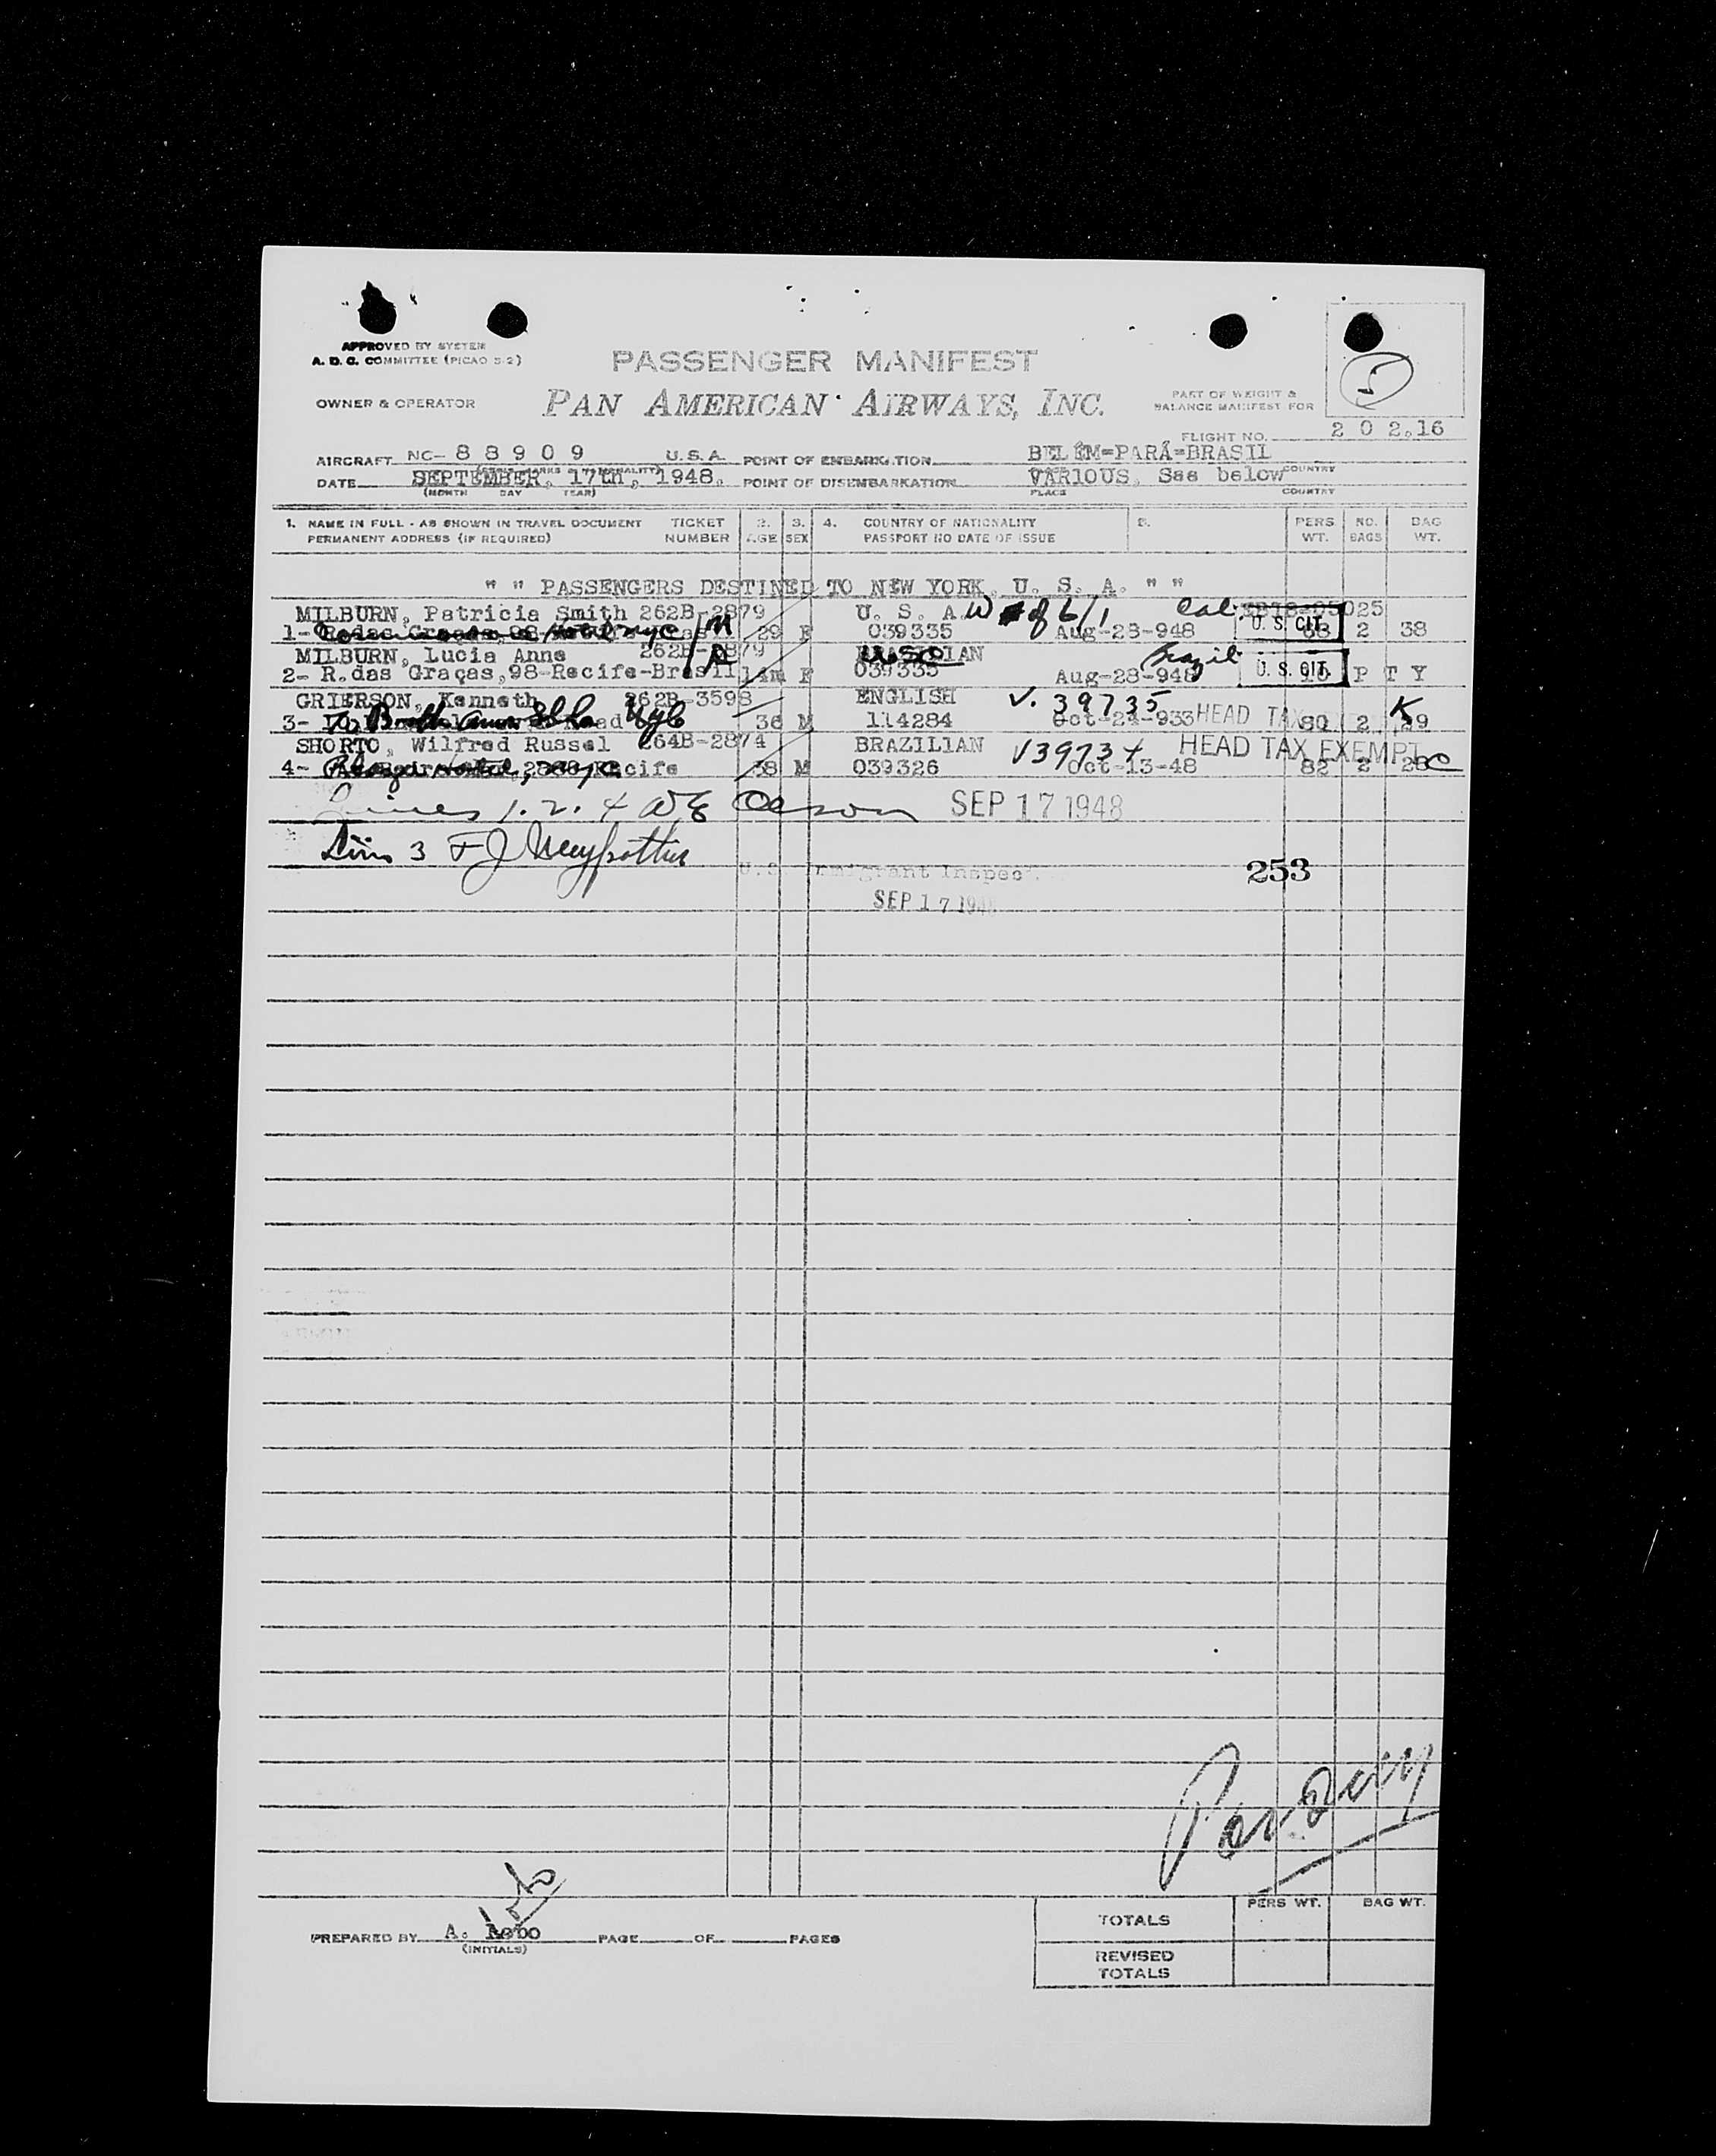 5
APPROVED BY SYSTEM
A. D. C. COMMITTEE (PICAO S-2)
PASSENGER MANIFEST
OWNER & OPERATOR
PAN AMERICAN AIRWAYS, INC.
PART OF WEIGHT &
BALANCE MANIFEST FOR
FLIGHT NO. 2 0 2.16
AIRCRAFT NC- 8 8 9 0 9 U.S.A. POINT OF EMBARKATION BELÉM=PARÁ=BRASIL
DATE SEPTEMBER, 17th, 1948. POINT OF DISEMBARKATION VARIOUS. See below COUNTRY
(MONTH DAY YEAR) PLACE COUNTRY
1. NAME IN FULL - AS SHOWN IN TRAVEL DOCUMENT TICKET 2. 3. 4. COUNTRY OF NATIONALITY 5. PERS NO. BAG
PERMANENT ADDRESS (IF REQUIRED) NUMBER AGE SEX PASSPORT NO DATE OF ISSUE WT. BAGS WT.
" " PASSENGERS DESTINED TO NEW YORK, U. S. A. " "
MILBURN, Patricia Smith 262B-2879 U. S. A. W # of 6/1 Cal.
1- 29 F 039335 Aug-28-948 U. S. CIT. 68 2 38
MILBURN, Lucia Anne 262B-2879 Brazil
2- R.das Graças,98-Recife-Brasil 14m F 039335 Aug-28-948 U. S. CIT. P T Y
GRIERSON, Kenneth 262B-3598 ENGLISH V. 39735 K
3- 36 M 114284 Oct-24-933 HEAD TAX 80 2 29
SHORTO, Wilfred Russel 264B-2874 BRAZILIAN V39734 HEAD TAX EXEMPT
4- Recife 38 M 039326 Oct-13-48 82 2 28 C
Lines 1. 2. 4 W E Olson SEP 17 1948
Line 3 F J
U.S. Immigrant Inspec 253
SEP 17 194
PREPARED BY A. Lobo PAGE OF PAGES
(INITIALS)
PERS WT. BAG WT.
TOTALS
REVISED
TOTALS